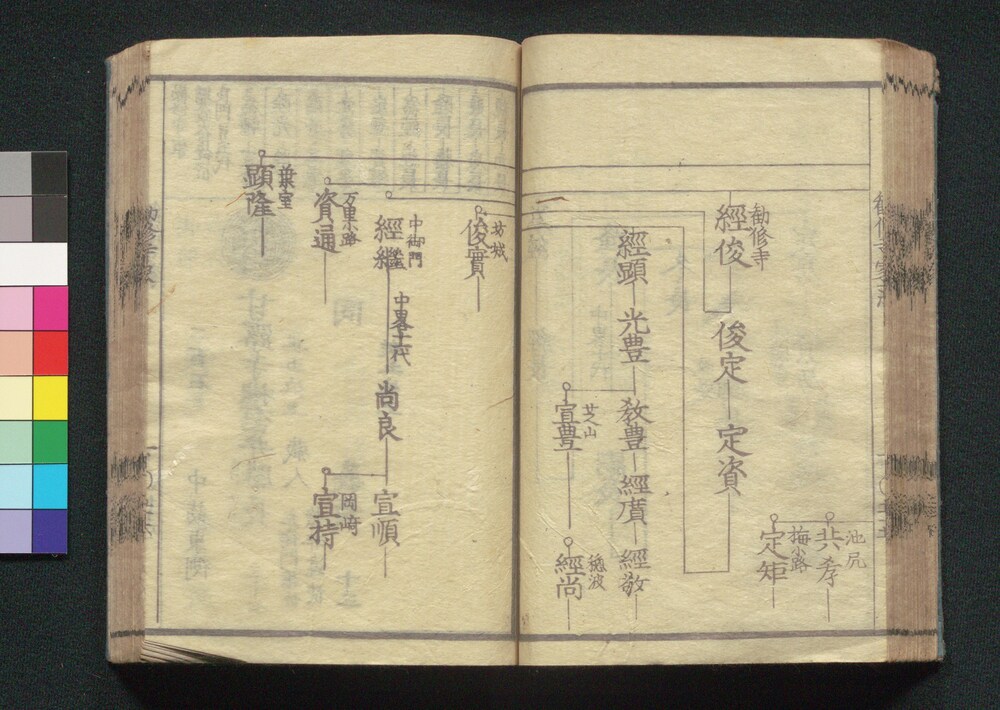 池尻
共孝
梅小路
定矩
勧修寺
經俊
俊定
定資
經顯
光豊
教豊
經廣
經敬
芝山
宣豊
穂波
經尚
坊城
俊實
中御門
經繼
中畧十一代
尚良
宣順
岡崎
宣持
万里小路
資通
葉室
顕隆